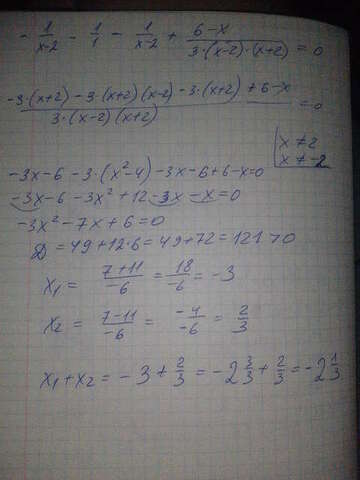 - 1/(x-2) - 1/1 - 1/(x-2) + (6-x)/(3·(x-2)·(x+2)) = 0
(-3·(x+2) - 3·(x+2)(x-2) - 3·(x+2) + 6-x)/(3·(x-2)(x+2)) = 0
x ≠ 2
x ≠ -2
-3x-6 - 3·(x²-4) - 3x-6+6-x=0
-3x-6 -3x² + 12 -3x -x=0
-3x² -7x + 6 = 0
D = 49+12·6 = 49+72 = 121 > 0
x₁ = (7+11)/-6 = 18/-6 = -3
x₂ = (7-11)/-6 = -4/-6 = 2/3
x₁+x₂ = -3 + 2/3 = -2 3/3 + 2/3 = -2 1/3